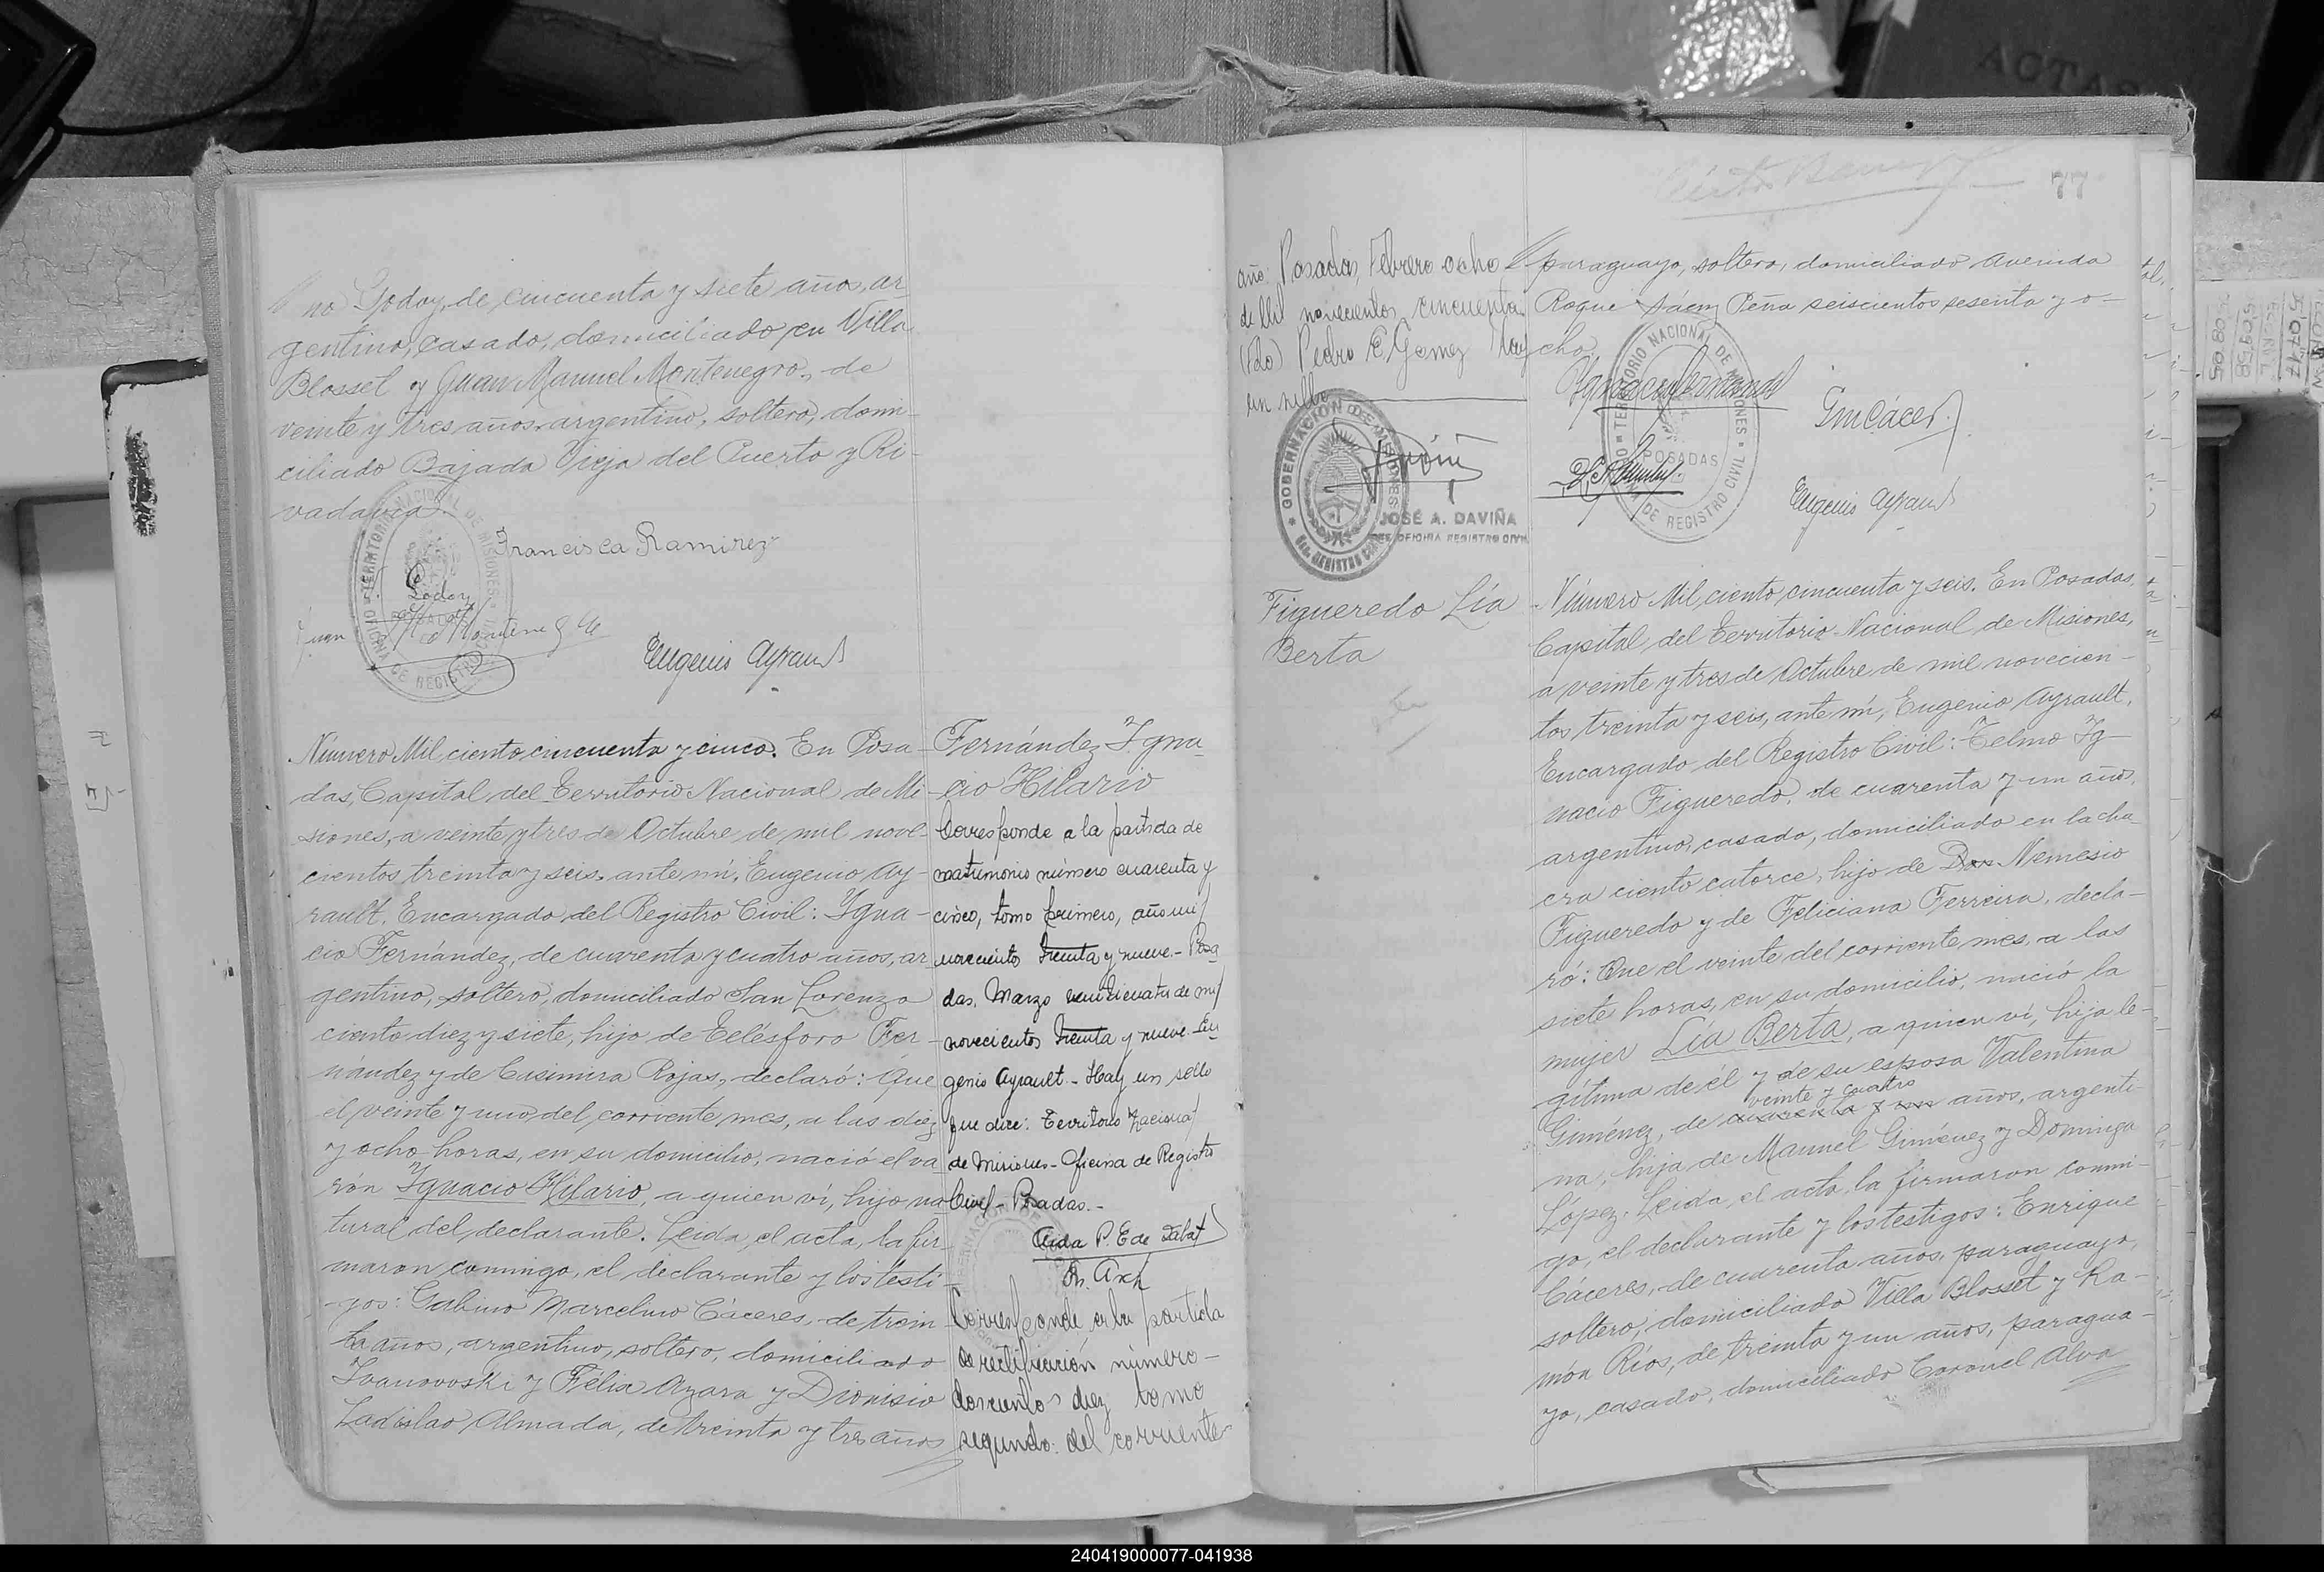 no Godoy, de cincuenta y siete años, ar
gentino, casado, domiciliado en Villa
Blosset y Juan Manuel Montenegro, de
veinte y tres años, argentino, soltero, domi-
ciliado Bajada Vieja del Puerto y Ri-
vadavia
Francisca Ramirez
Godoy
Juan
Eugenio Ayrault
Número Mil ciento cincuenta y cinco. En Posa-
das, Capital del Territorio Nacional de Mi-
siones, a veinte y tres de Octubre de mil nove-
cientos treinta y seis, ante mí, Eugenio Ay-
rault, Encargado del Registro Civil: Igna-
cio Fernández, de cuarenta y cuatro años, ar
gentino, soltero, domiciliado San Lorenzo
ciento diez y siete, hijo de Telésforo Fer-
nández y de Casimira Rojas, declaró: Que
el veinte y uno del corriente mes, a las diez
y ocho horas, en su domicilio, nació el va
rón Ignacio Hilario, a quien ví, hijo na
tural del declarante. Leida el acta, la fir-
maron conmigo, el declarante y los testi-
gos: Gabino Marcelino Cáceres, de trein-
ta años, argentino, soltero, domiciliado
Ivanovoski y Félix Azara y Dionisio
Ladislao Almada, de treinta y tres años
Fernández Igna-
cio Hilario
Corresponde a la partida de
matrimonio número cuarenta y
cinco, tomo primero, año mil
novecientos treinta y nueve.- Posa
das, Marzo veinticuatro de mil
novecientos treinta y nueve. Eu
genio Ayrault - Hay un sello
que dice: Territorio Nacional
de Misiones - Oficina de Registro
Civil - Posadas.-
Aida P. E de
Corresponde a la partida
de rectificación número -
doscientos diez tomo
segundo: del corriente
77
año: Posadas, Febrero ocho
de Mil novecientos cincuenta
(Fdo) Pedro E. Gomez Hay
un sello
GOBERNACION DE MISIONES
JOSÉ A. DAVIÑA
JEFE OFICINA REGISTRO CIVIL
paraguayo, soltero, domiciliado Avenida
Roque Sáenz Peña seiscientos sesenta y o-
cho
TERRITORIO NACIONAL DE MISIONES
POSADAS
OFICINA DE REGISTRO CIVIL
GmCácer
Eugenio Ayrault
Figueredo Lía
Berta
Número Mil ciento cincuenta y seis. En Posadas,
Capital del Territorio Nacional de Misiones,
a veinte y tres de Octubre de mil novecien-
tos treinta y seis, ante mí, Eugenio Ayrault,
Encargado del Registro Civil: Telmo Ig-
nacio Figueredo, de cuarenta y un años,
argentino, casado, domiciliado en la cha-
cra ciento catorce, hijo de Don Nemesio
Figueredo y de Feliciana Ferreira, decla-
ró: Que el veinte del corriente mes, a las
siete horas, en su domicilio, nació la
mujer Lía Berta, a quien ví, hija le-
gítima de él y de su esposa Valentina
veinte y cuatro
Giménez, de cuarenta y un años, argenti-
na, hija de Manuel Giménez y Dominga
López. Leida el acta, la firmaron conmi-
go, el declarante y los testigos: Enrique
Cáceres, de cuarenta años, paraguayo,
soltero, domiciliado Villa Blosset y Ra-
món Ríos, de treinta y un años, paragua-
yo, casado, domiciliado Coronel Alva
240419000077-041938